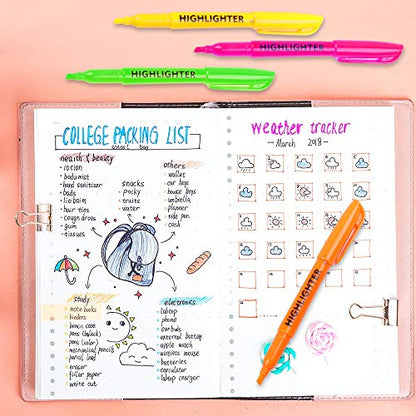 HIGHLIGHTER
HIGHLIGHTER
HIGHLIGHTER
COLLEGE PACKING LIST
school bag
health & beauty
lotion
body mist
hand sanitizer
bads
lip balm
hair ties
cough drops
gum
tissues
snacks
pocky
fruits
water
others
wallet
car keys
house keys
umbrella
planner
usb pen
cash
study
note books
binders
pencil case
pens (black)
pens (color)
mechanical pencil
pencil lead
eraser
filler paper
white out
electronics
laptop
phone
earbuds
external battery
apple watch
wireless mouse
batteries
calculator
laptop charger
weather tracker
- March 2018 -
HIGHLIGHTER